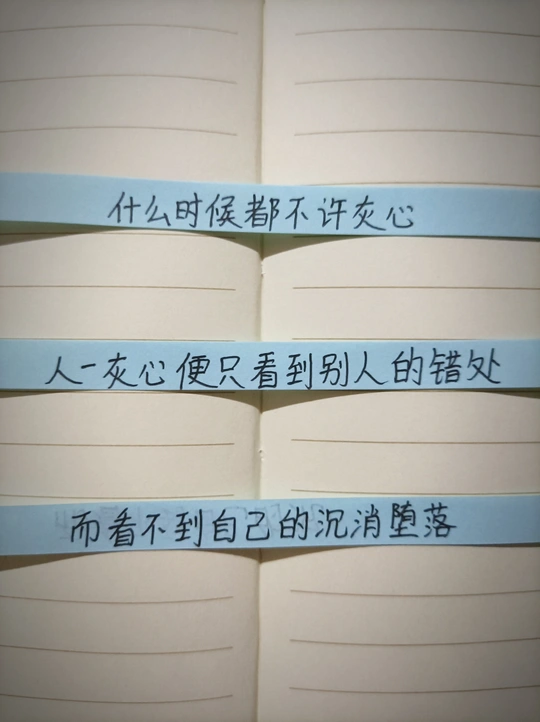 什么时候都不许灰心
人一灰心便只看到别人的错处
而看不到自己的沉消堕落